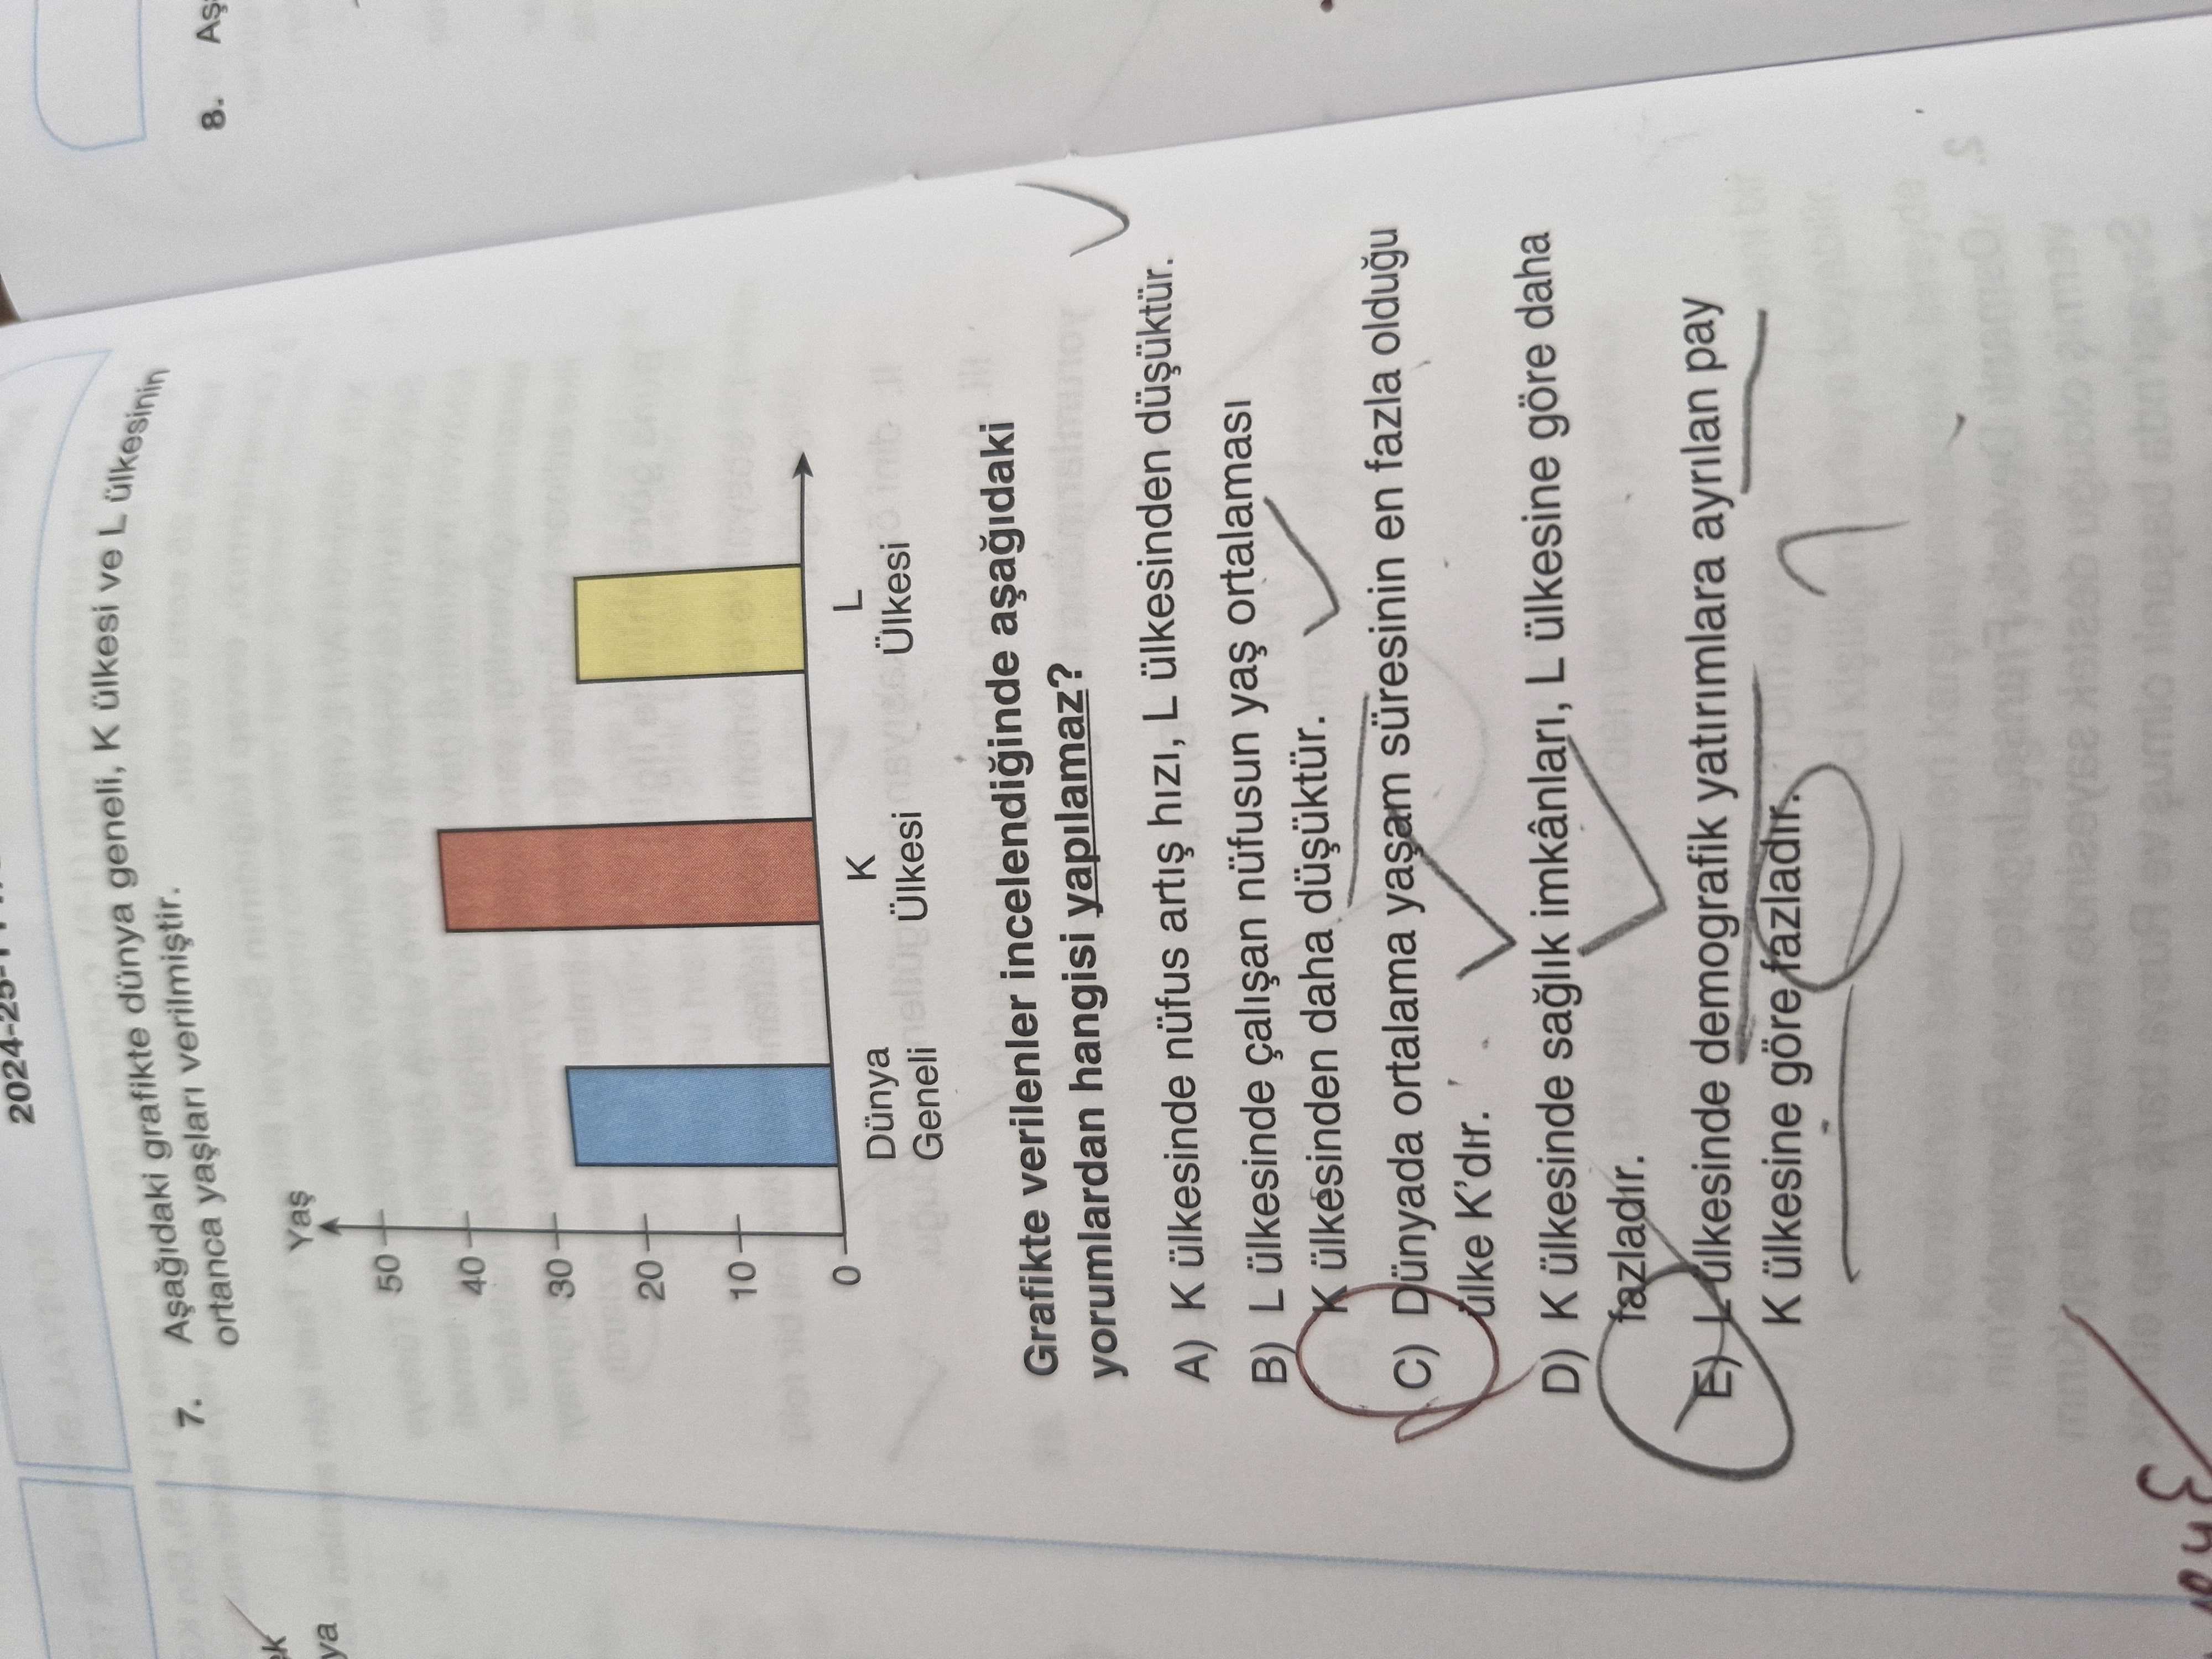 2024-25-
7. Aşağıdaki grafikte dünya geneli, K ülkesi ve L ülkesinin
ortanca yaşları verilmiştir.
Yaş
50
40
30
20
10
0
Dünya
Geneli
K
Ülkesi
L
Ülkesi
Grafikte verilenler incelendiğinde aşağıdaki
yorumlardan hangisi yapılamaz?
A) K ülkesinde nüfus artış hızı, L ülkesinden düşüktür.
B) L ülkesinde çalışan nüfusun yaş ortalaması
K ülkesinden daha düşüktür.
C) Dünyada ortalama yaşam süresinin en fazla olduğu
ülke K'dır.
D) K ülkesinde sağlık imkânları, L ülkesine göre daha
fazladır.
E) L ülkesinde demografik yatırımlara ayrılan pay
K ülkesine göre fazladır.
8. Aş
ek
ya